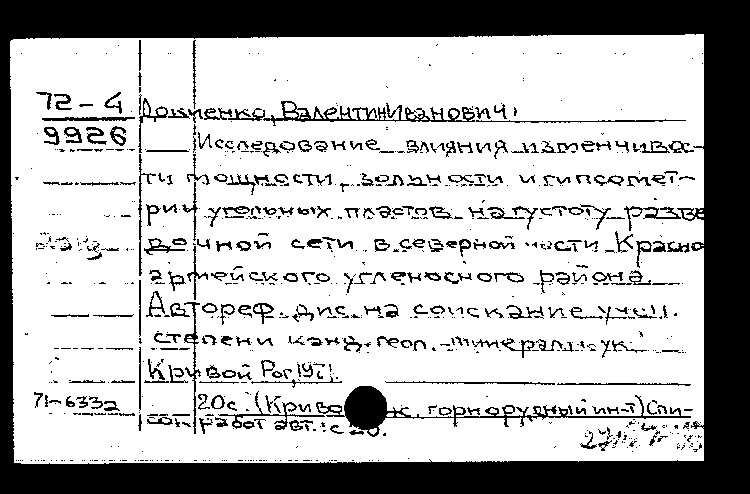 72-4 Докиенко, Валентин Иванович.
9926 Исследование влияния изменчивос-
ти мощности, зольности и гипсомет-
рии угольных пластов на густоту разве
дочной сети в северной части Красно
армейского угленосного района.
Автореф. дис. на соискание учен.
степени канд. геол.-минерал. наук.
Кривой Рог, 1971.
71-6332 20с. (Криво ж. горнорудный ин-т) Спи-
сок работ авт.: с 20.